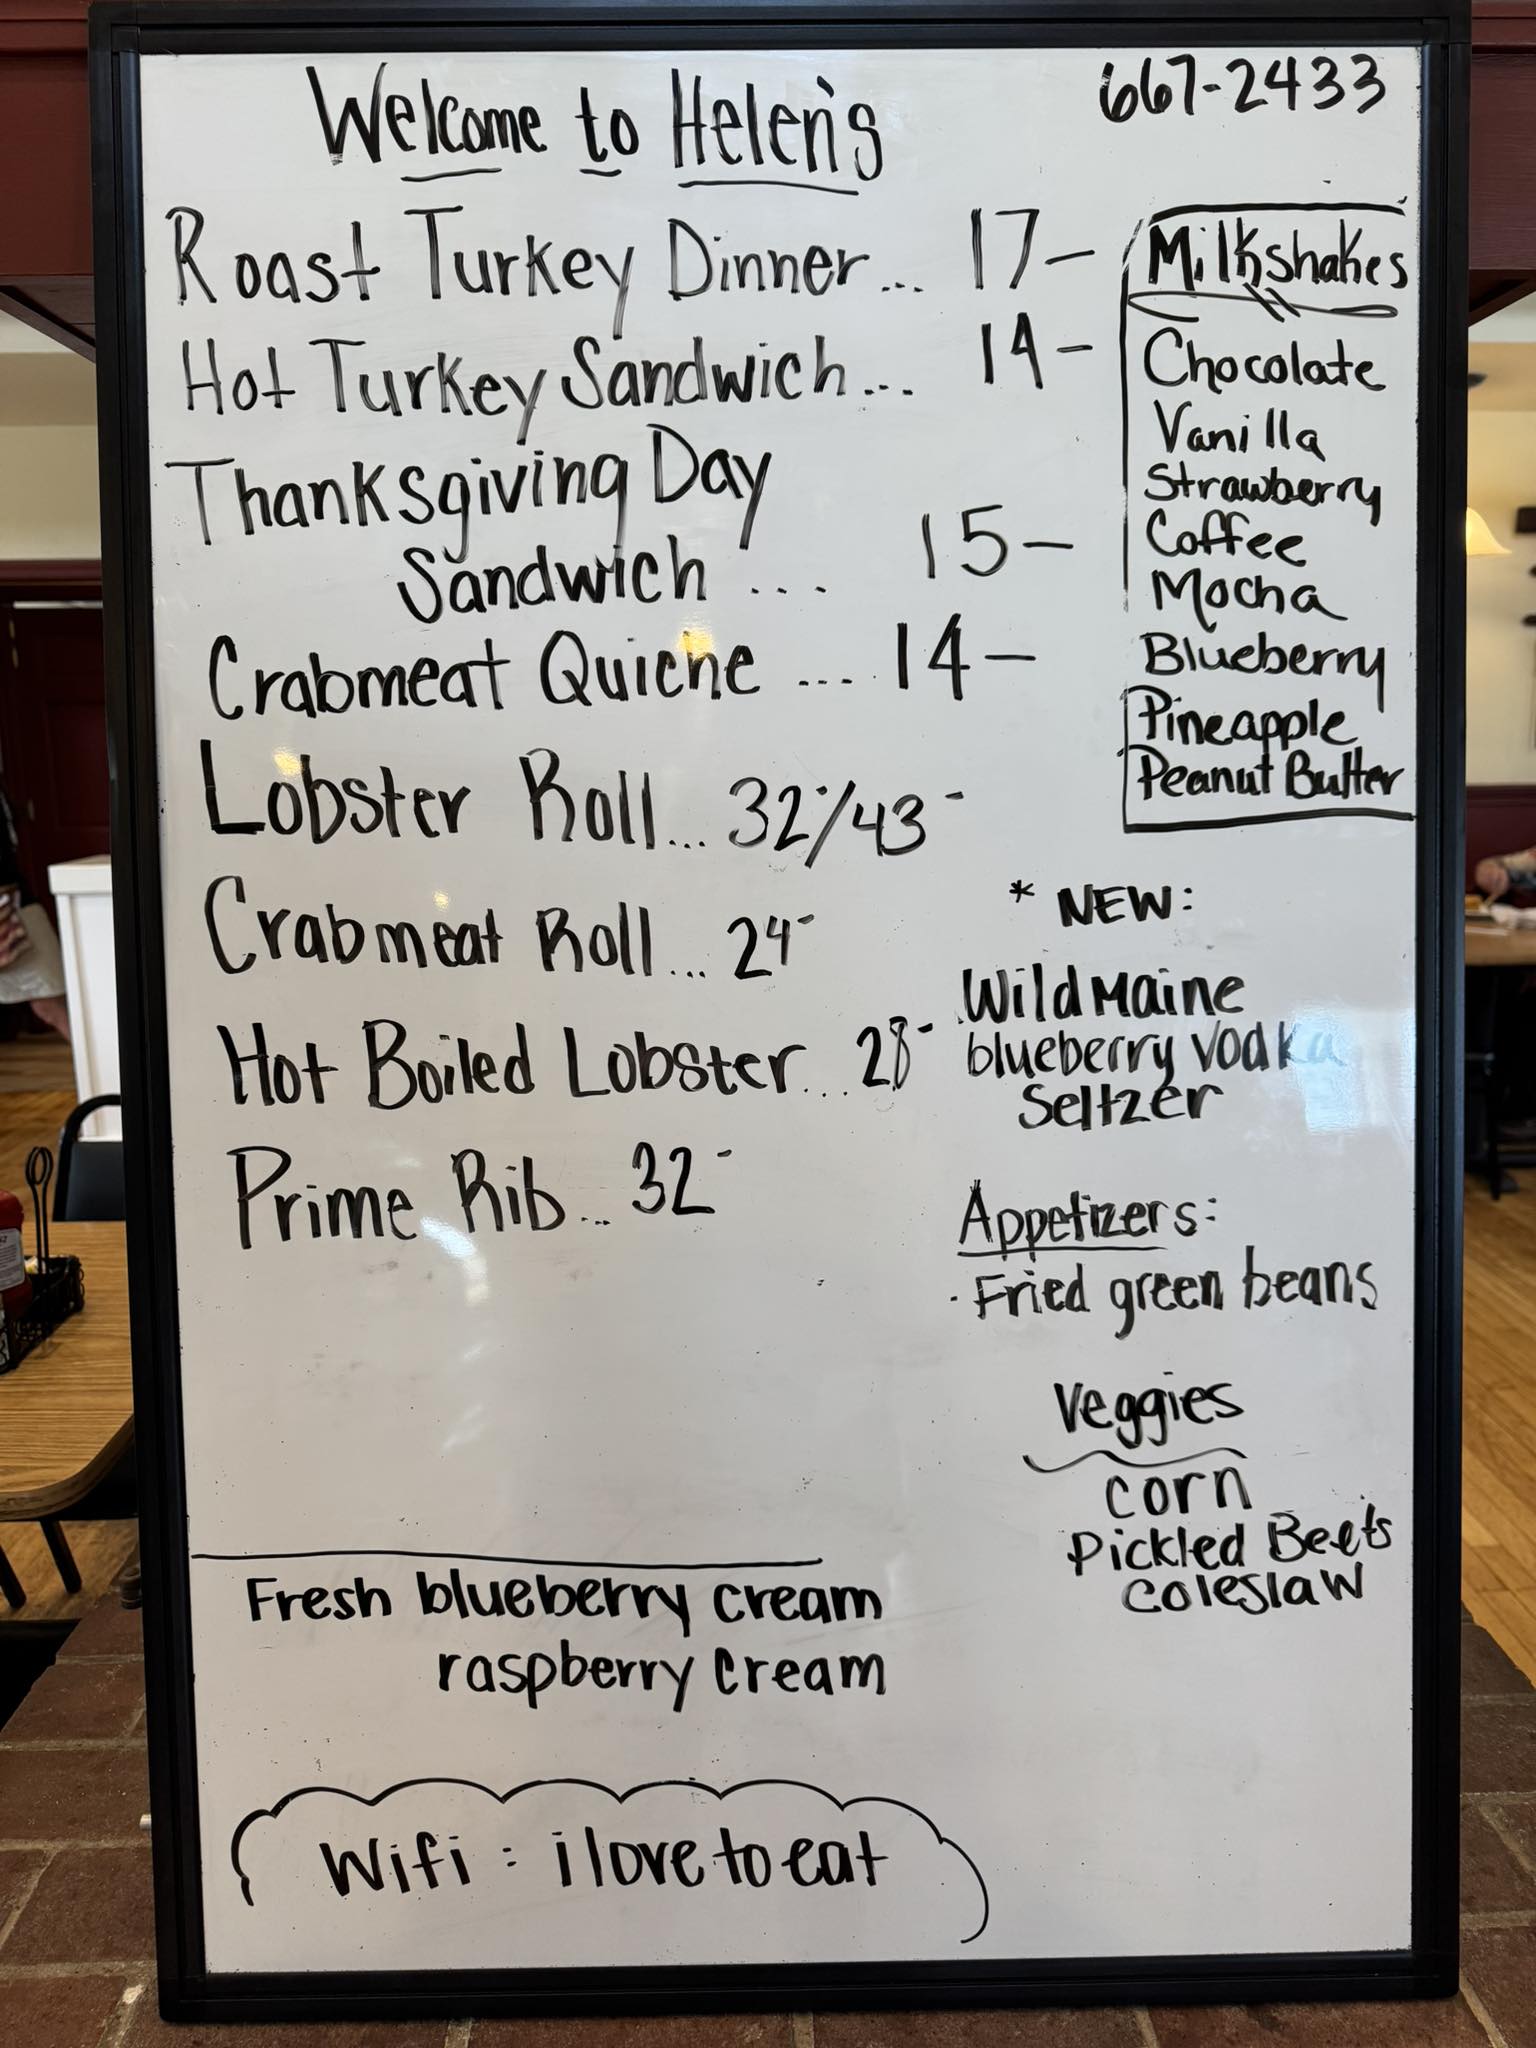 Welcome to Helen's
667-2433
Roast Turkey Dinner... 17-
Hot Turkey Sandwich... 14-
Thanksgiving Day
Sandwich ... 15-
Crabmeat Quiche .... 14-
Lobster Roll... 32-/43-
Crabmeat Roll... 24-
Hot Boiled Lobster... 28-
Prime Rib... 32-
Milkshakes
Chocolate
Vanilla
Strawberry
Coffee
Mocha
Blueberry
Pineapple
Peanut Butter
* NEW:
Wild Maine
blueberry vodka
Seltzer
Appetizers:
· Fried green beans
Veggies
corn
Pickled Beets
coleslaw
Fresh blueberry cream
raspberry cream
Wifi : ilovetoeat